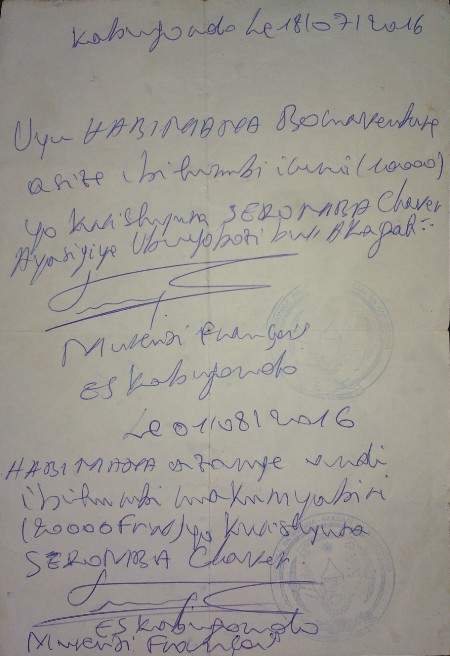 Kabuyondo Le 18/07/2016
Uyu HABIMANA Bonaventure
asize ibihumbi icumi (10000)
yo kwishyura SEROMBA Chaver
Ayasigiye Ubuyobozi bw' Akagali
Munenzi François
ES Kabuyondo
Le 01/08/2016
HABIMANA atanze andi
ibihumbi makumyabiri
(20000 Frws) yo kwishyura
SEROMBA Chaver
ES Kabuyondo
Munenzi François